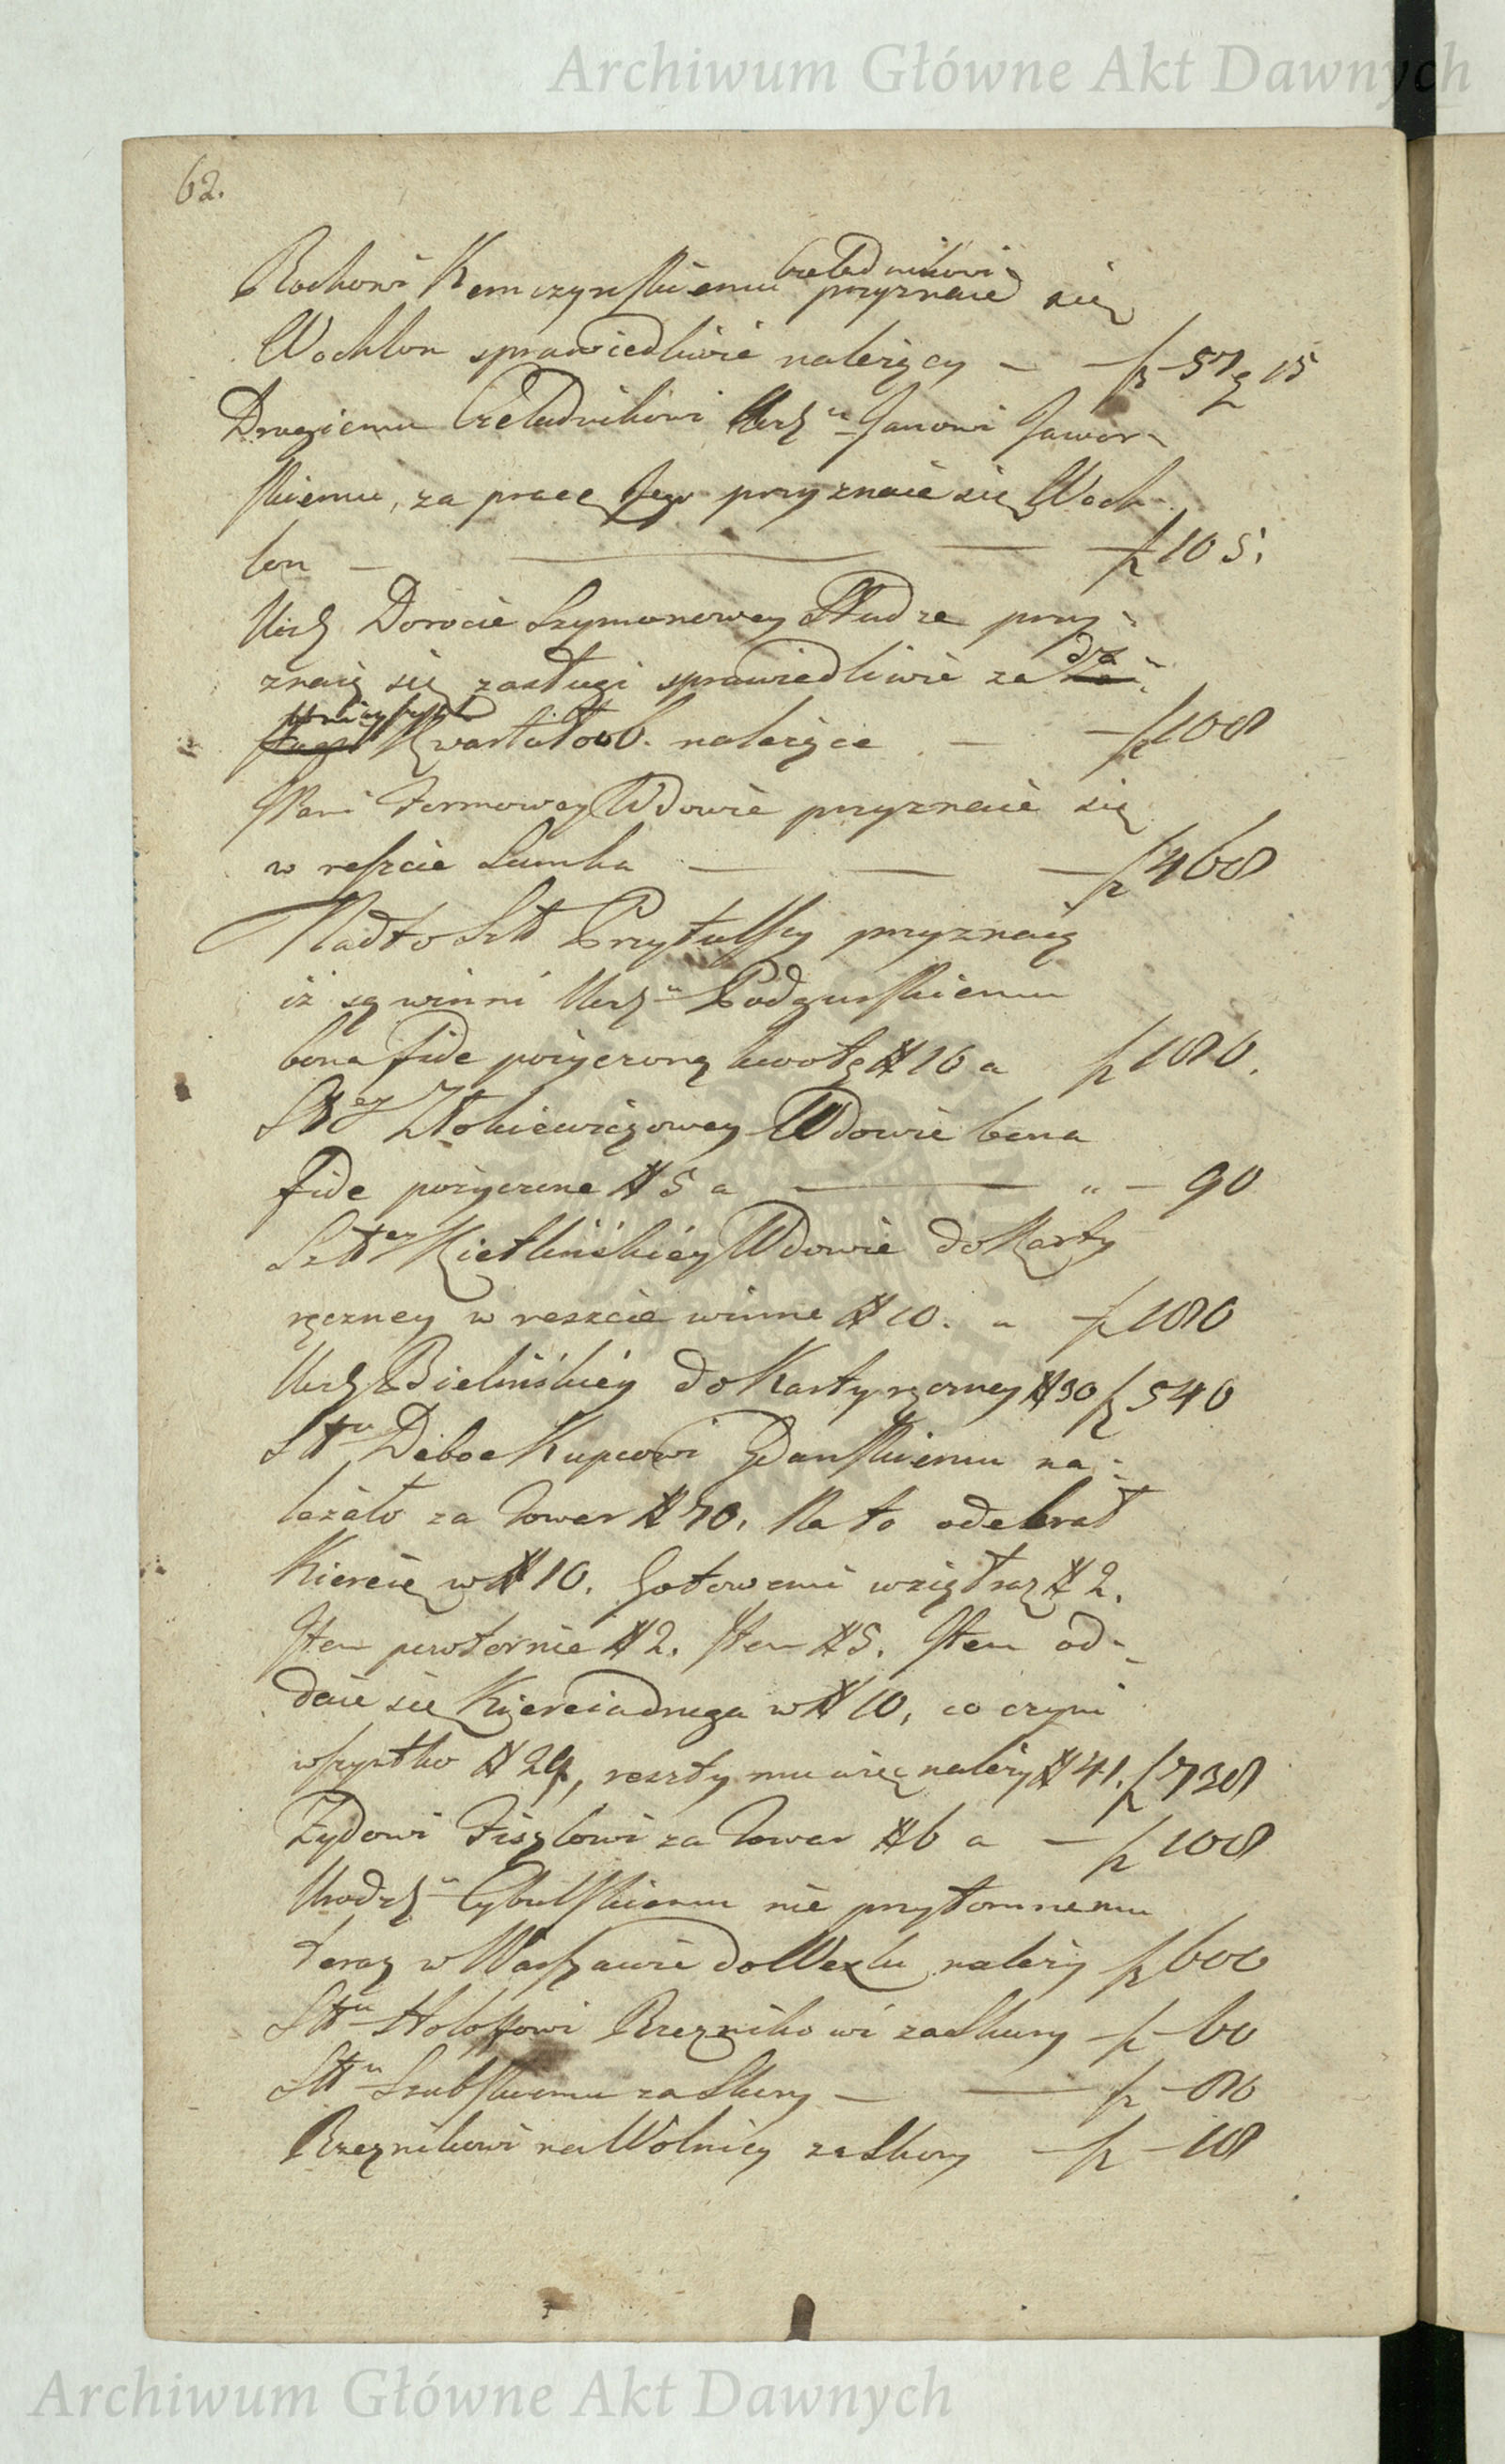 Archiwum Główne Akt Dawnych
62.
Czeladnikowi
Rochowi Kemczyńskiemu przyznaie się
Wochlon sprawiedliwie należący — f 57 g 15
Drugiemu Czeladnikowi Urz. Janowi Jawor-
skiemu, za pracę Jego przyznaie się Woch-
lon — f 105.
Dorocie Szymonowey Słudze przy-
znaią się zasługi sprawiedliwie za
Kwartałów 6. należące — f 108
Pani Formowey Wdowie przyznaie się
w reszcie Sumka — f 468
Nadto Szt Przytulscy przyznaią
iż są winni Urz. Podgurskiemu
bona fide pożyczoną kwotę # 16 a f
Złokiewiczowey Wdowie bona
fide pożyczone # 5 a — " — 90
Kietlińskiey Wdowie do Karty
ręczney w reszcie winne # 10. a f 180
Bielińskiey do Karty ręczney # 30 f 540
Deboe Kupcowi Gdanskiemu na-
leżało za Towar # 70. Na to odebrał
Kiereię w # 10. Gotowemi wziął raz # 2.
Item powtornie # 2. Item # 5. Item od-
daie się Kiereia druga w # 10, co czyni
wszystko # 29, reszty mu więc należy # 41. f 738
Żydowi Fiszlowi za Towar # 6 a — f 108
Urodz. Cybulskiemu nie przytomnemu
teraz w Warszawie do Wexlu należy f 600
Rzeznikowi za Skury — f — 60
Szubskiemu za Skury — f —
Rzeznikowi na Wolnicy za Skury — f — 18
Archiwum Główne Akt Dawnych